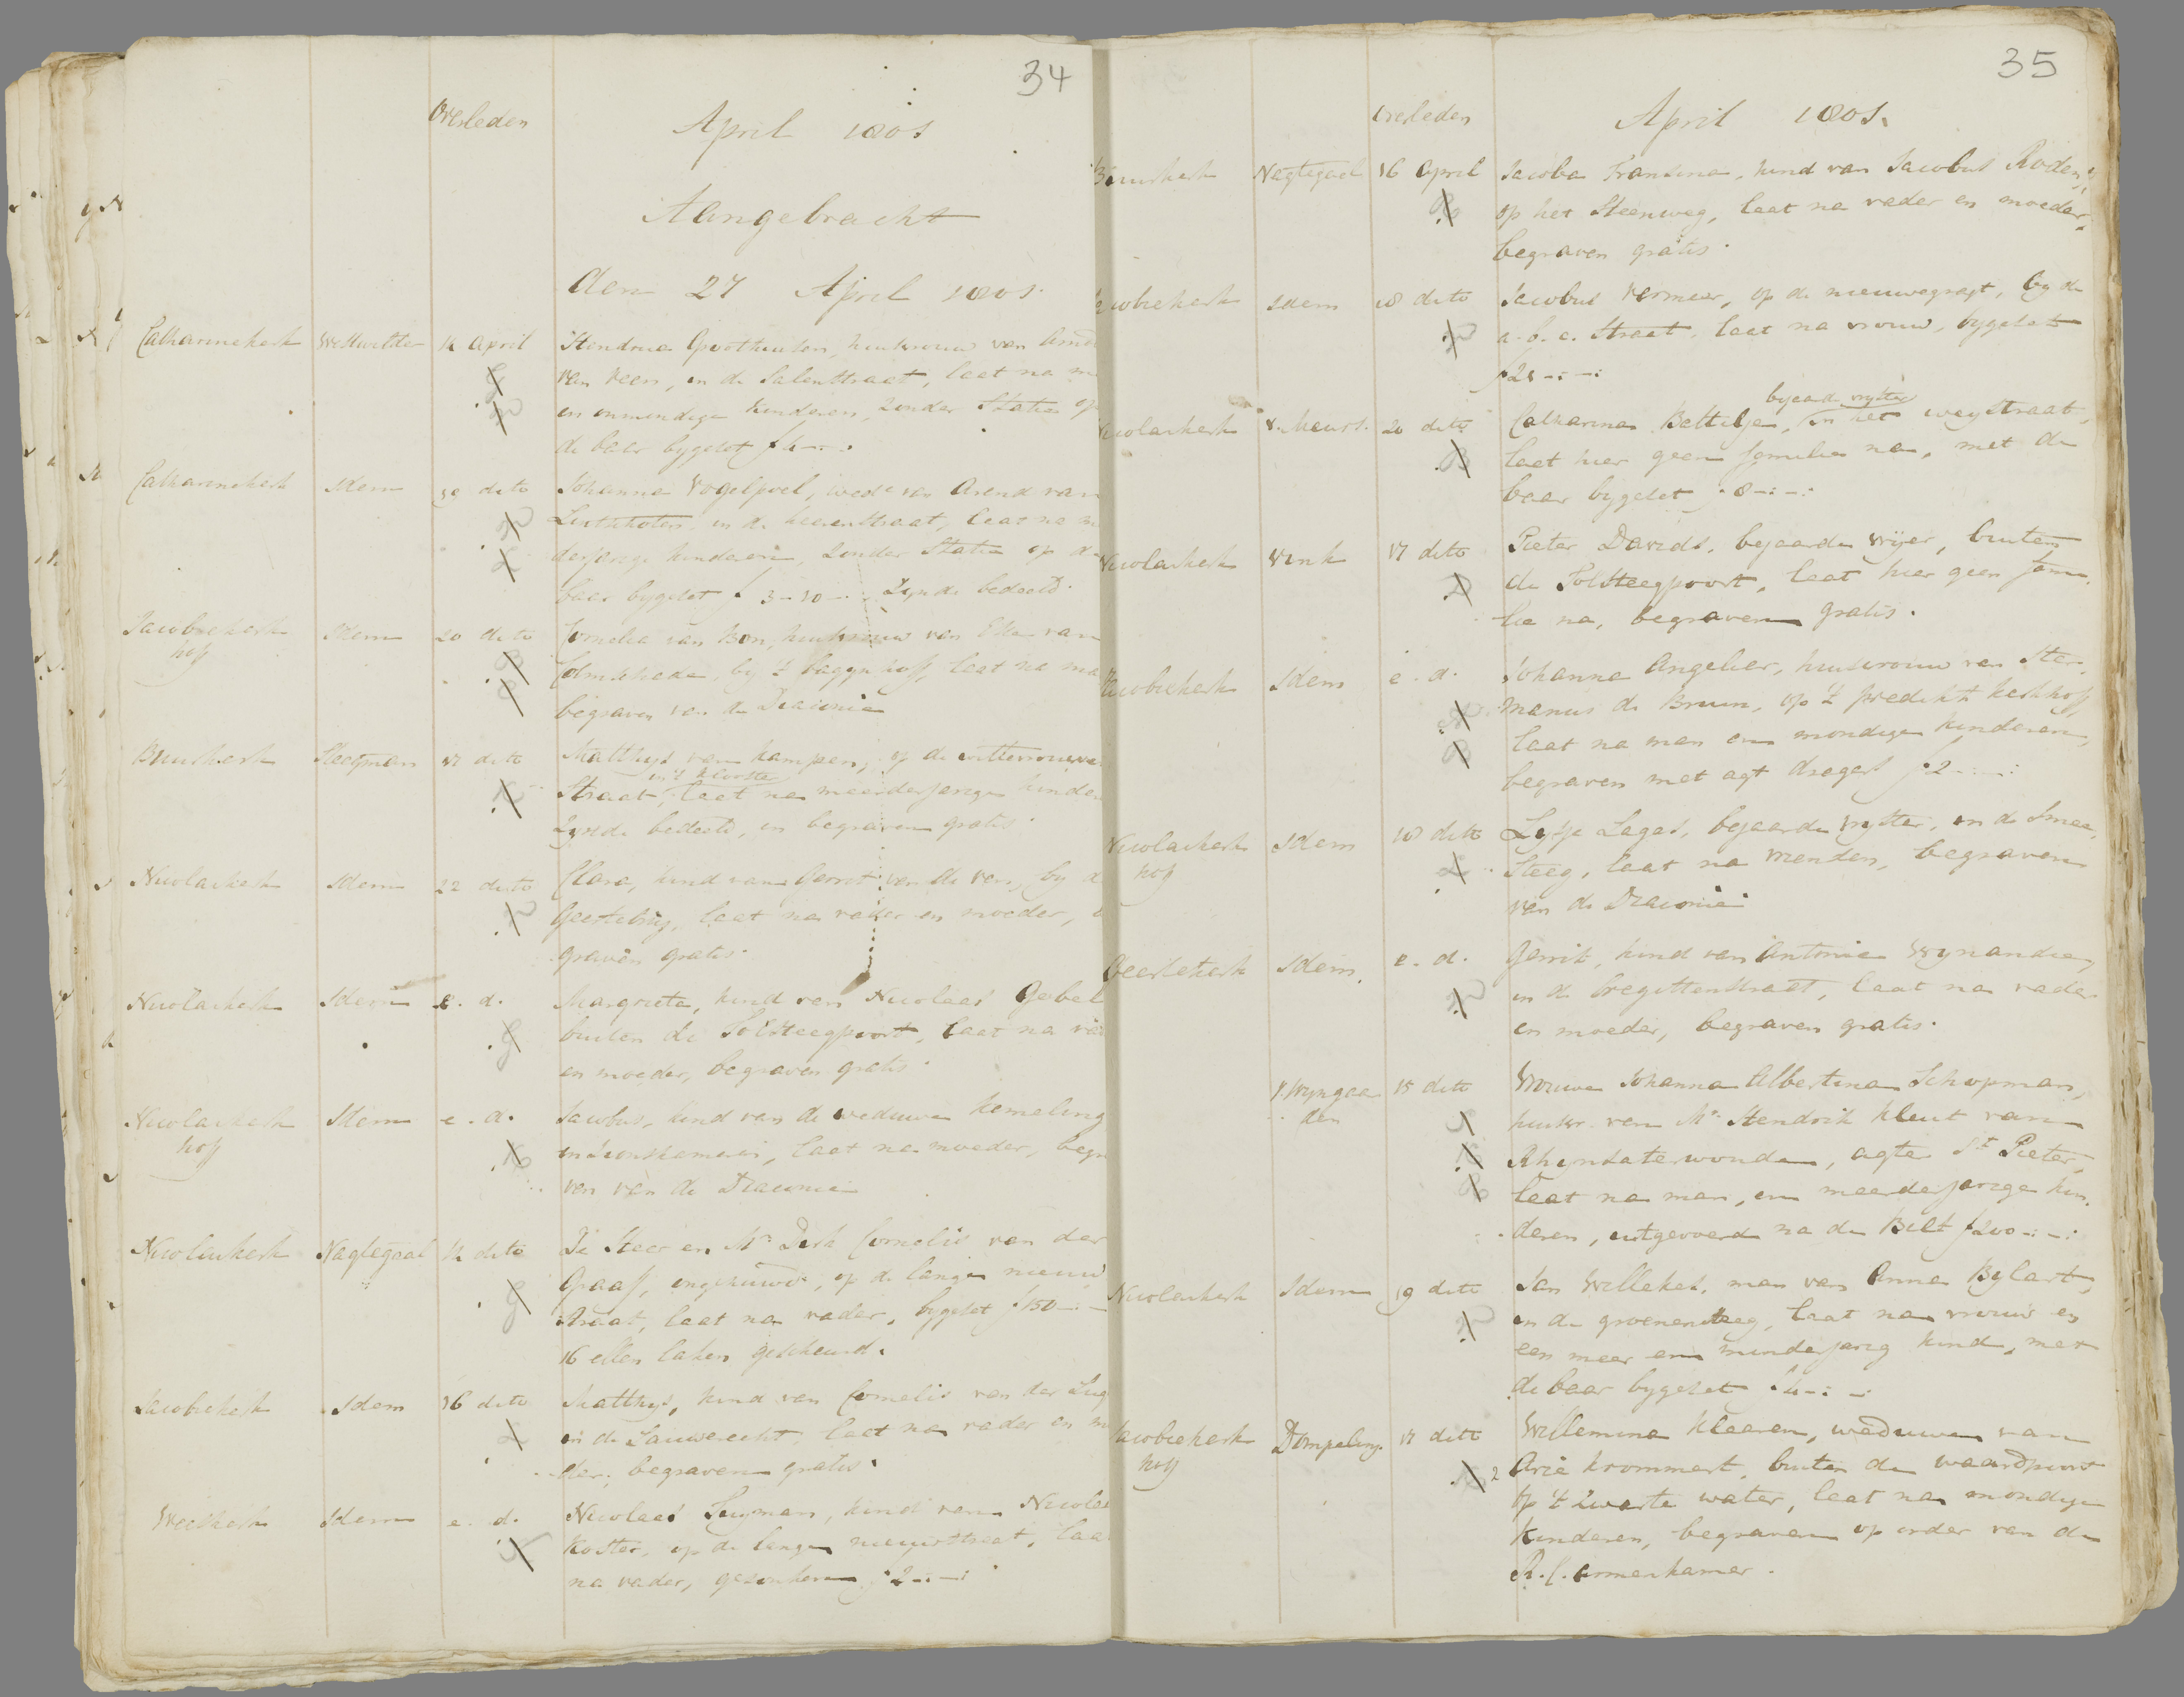 34
Overleden
April 1801
Aangebracht
den 27 April 1801
Catharinekerk Westwetter 14 April Hendrina Groothuisen, huisvrouw van
van Veen, in de Salenstraat, laat na
en onmondige kinderen, zonder Statie op
de baar bygeset f 4-:-:
Catharinekerk Idem 19 dito Johanna Vogelpoel, wedе van Arend van
in de heerenstraat, laat na
derjarige kinderen, zonder Statie op de
baar bygeset f 3-10-: Zynde bedeeld.
Jacobiekerk Idem 20 dito Cornelia van Bon, huisvrouw van van
hoff by 't bagynhoff, laat na
begraven van de Diaconie
Buurkerk Steegman 17 dito Matthys van Kampen, op de wittevrouwe
in 't klooster
Straat, laat na meerderjarige kinde
Zynde bedeeld, en begraven gratis.
Nicolaikerk Idem 22 dito Clara, kind van Gerrit van de Ven, by de
Geertebrug, laat na vader en moeder,
graven gratis.
Nicolaikerk Idem e. d. Margrieta, kind van Nicolaas Gebel
buiten de Tolsteegpoort, laat na
en moeder, begraven gratis.
Nicolaikerk Idem e. d. Jacobus, kind van de weduwe Hemeling
hoff laat na moeder, begra
ven van de Diaconie
Nicolaikerk Nagtegaal 14 dito De Heer en Mr. Dirk Cornelis van der
Graaff, ongehuwd, op de lange nieuw
straat, laat na vader, bygeset f 150-:-
16 ellen laken gescheurd.
Jacobiekerk Idem 16 dito Matthys, kind van Cornelis van der
in de Lauwerecht, laat na vader en
der, begraven gratis.
Weeskerk Idem e. d. Nicolaas kind van
Koster, op de lange nieuwstraat, laat
na vader, gesonken f 2-:-:
35
overleden
April 1801.
Buurkerk Nagtegaal 16 April Jacoba Fransina, kind van Jacobus
op het Steenweg, laat na vader en moeder,
begraven gratis.
Jacobiekerk Idem 18 dito Jacobus Vermeer, op de nieuwegragt, by de
a. b. c. Straat, laat na vrouw, bygeset
f 21-:-:
bejaarde vryster
Nicolaikerk v. Meurs. 20 dito Catharina Battilje, in het weystraat,
laat hier geen familie na, met de
baar bygeset f 8-:-:
Nicolaikerk Vink 17 dito Pieter Davids, bejaarde vryer, buiten
de Tolsteegpoort, laat hier geen fami-
lie na, begraven gratis.
Jacobiekerk Idem e. d. Johanna Angelier, huisvrouw van Her-
manus de Bruin, op 't predikh kerkhoff,
laat na man en mondige kinderen,
begraven met agt dragers f 2-:-:
Nicolaikerk Idem 18 dito Lysje Lagas, bejaarde vryster, in de Smee-
hoff Steeg, laat na vrienden, begraven
van de Diaconie
Geertekerk Idem. e. d. Gerrit, kind van Antonie Wynandie,
in de bregittenstraat, laat na vader
en moeder, begraven gratis.
V. Wyngaar 15 dito Vrouwe Johanna Albertina Schopman,
den huisvr. van Mr. Hendrik Kleut van
Rhynsaterwoude, agter St. Pieter,
laat na man, en meerderjarige kin-
deren, uitgevoerd na de Bilt f 200-:-:
Nicolaikerk Idem 19 dito Jan Willekes, man van Anna Bylart,
in de groenensteeg, laat na vrouw en
een meer en minderjarig kind, met
de baar bygeset f 4-:-:
Jacobiekerk Dompeling 17 dito Willemina Klaaren, weduwe van
hoff Arie Krommert, buiten de waardpoort
op 't zwarte water, laat na mondige
kinderen, begraven op order van de
R. C. armenkamer.